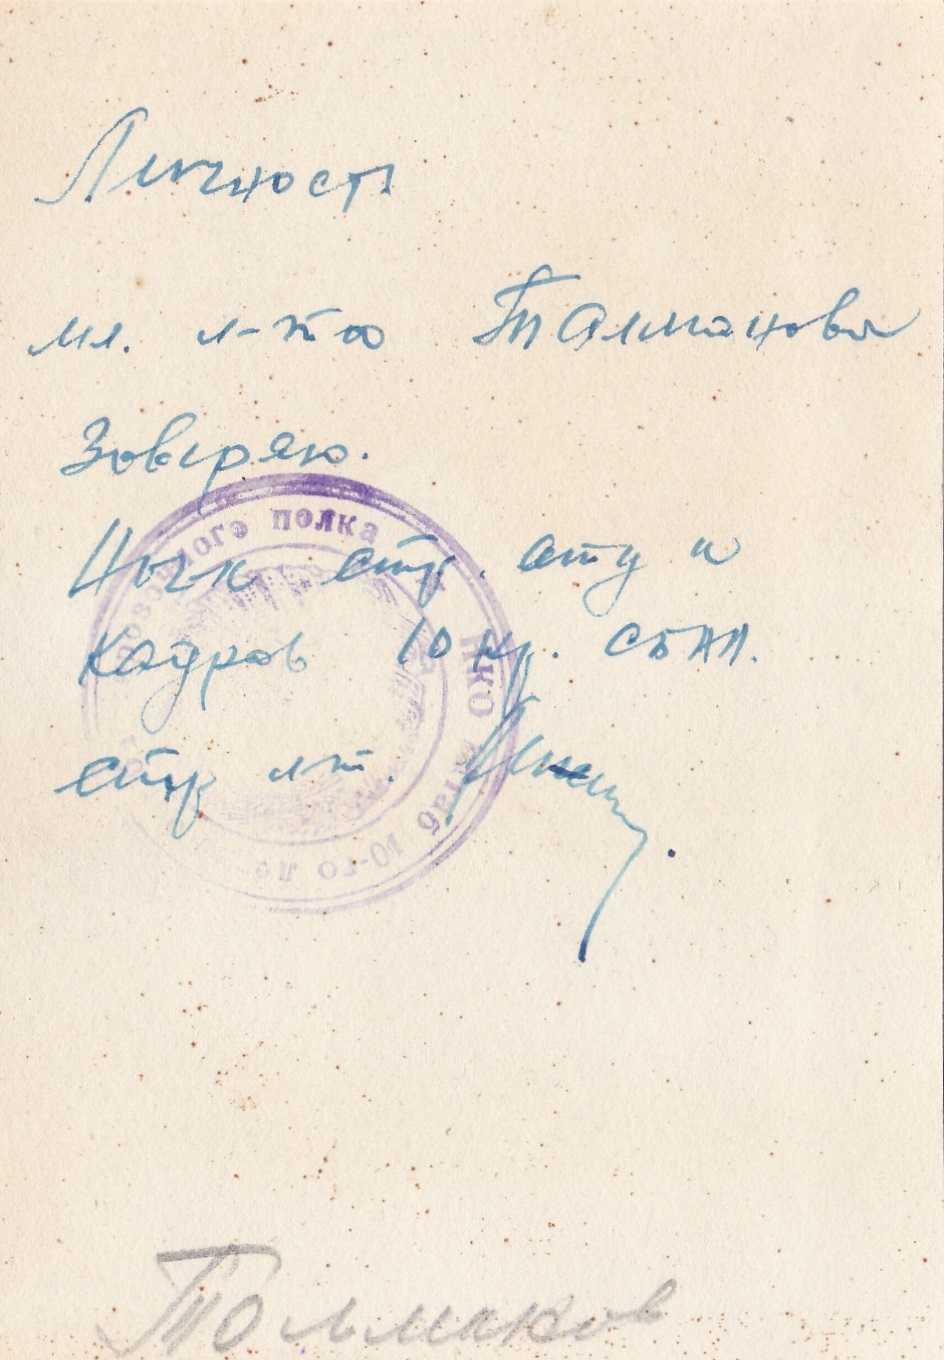 Личность
мл. л-та Талманова
Заверяю.
Нач стр. отд и
кадров 10 кр. сбап.
стр лт.
ного полка НКО штаб 10-го
Толмаков